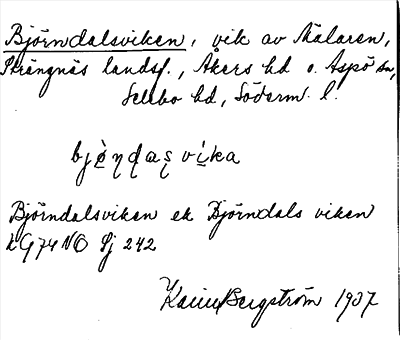 Björndalsviken, vik av Mälaren,
Strängnäs landsf., Åkers hd o. Aspö sn,
Selebo hd, Söderm. l.
bjø̀ɳɖaʂ vi̇̀ka
Björndalsviken ek Björndals viken
kG 74 NO Sj 242
Karin Bergström 1937